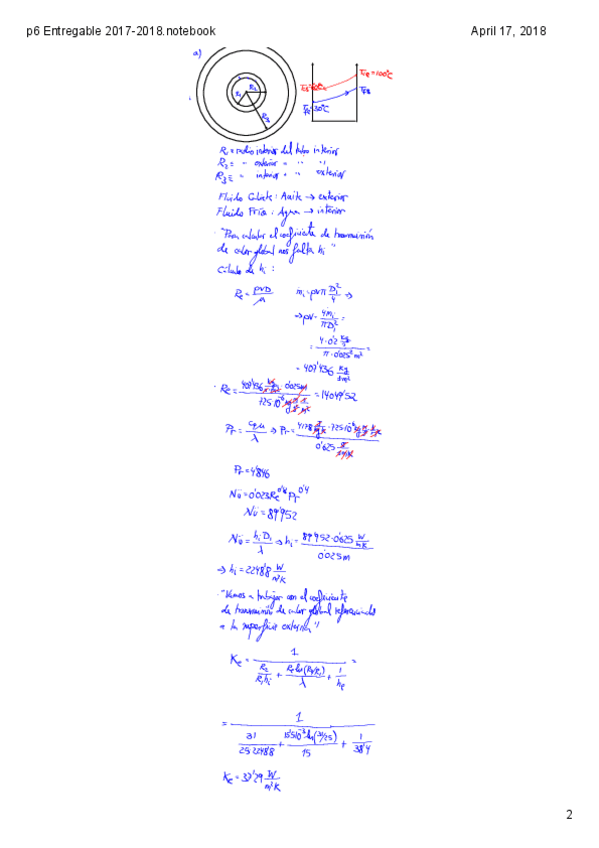 p6 Entregable 2017-2018.notebook April 17, 2018
a)
R1 R2 R3
Te=100°C
TFe=30°C
R1=radio interior del tubo interior
R2= " exterior " " "
R3= " interior " " exterior
Fluido Caliente: Aceite → exterior
Fluido Frío: Agua → interior
"Para calcular el coeficiente de transmisión
de calor global nos falta hi"
Cálculo de hi:
Re = ρvD/μ ṁi=ρvπ Di²/4 ⇒
⇒ρv= 4ṁi/πDi² =
= 4·0'2 Kg/s / π·0'025² m² =
= 407'436 Kg/sm²
Re= 407'436 Kg/sm² · 0'025m / 725·10⁻⁶ = 14049'52
Pr= cpμ/λ ⇒ Pr= 4178 · 725·10⁻⁶ / 0'625
Pr=4'846
Nu=0'023Re^0'8 Pr^0'4
Nu=89'952
Nu= hiDi/λ → hi= 89'952·0'625 W/mK / 0'025m
→ hi=2248'8 W/m²K
"Vamos a trabajar con el coeficiente
de transmisión de calor global referenciado
a la superficie exterior"
Ke= 1 / (R2/R1hi + R2 ln(R2/R1)/λ + 1/he) =
= 1 / (31/25·2248'8 + 15'5·10⁻³ ln(31/25)/15 + 1/38'4)
Ke=37'29 W/m²K
2